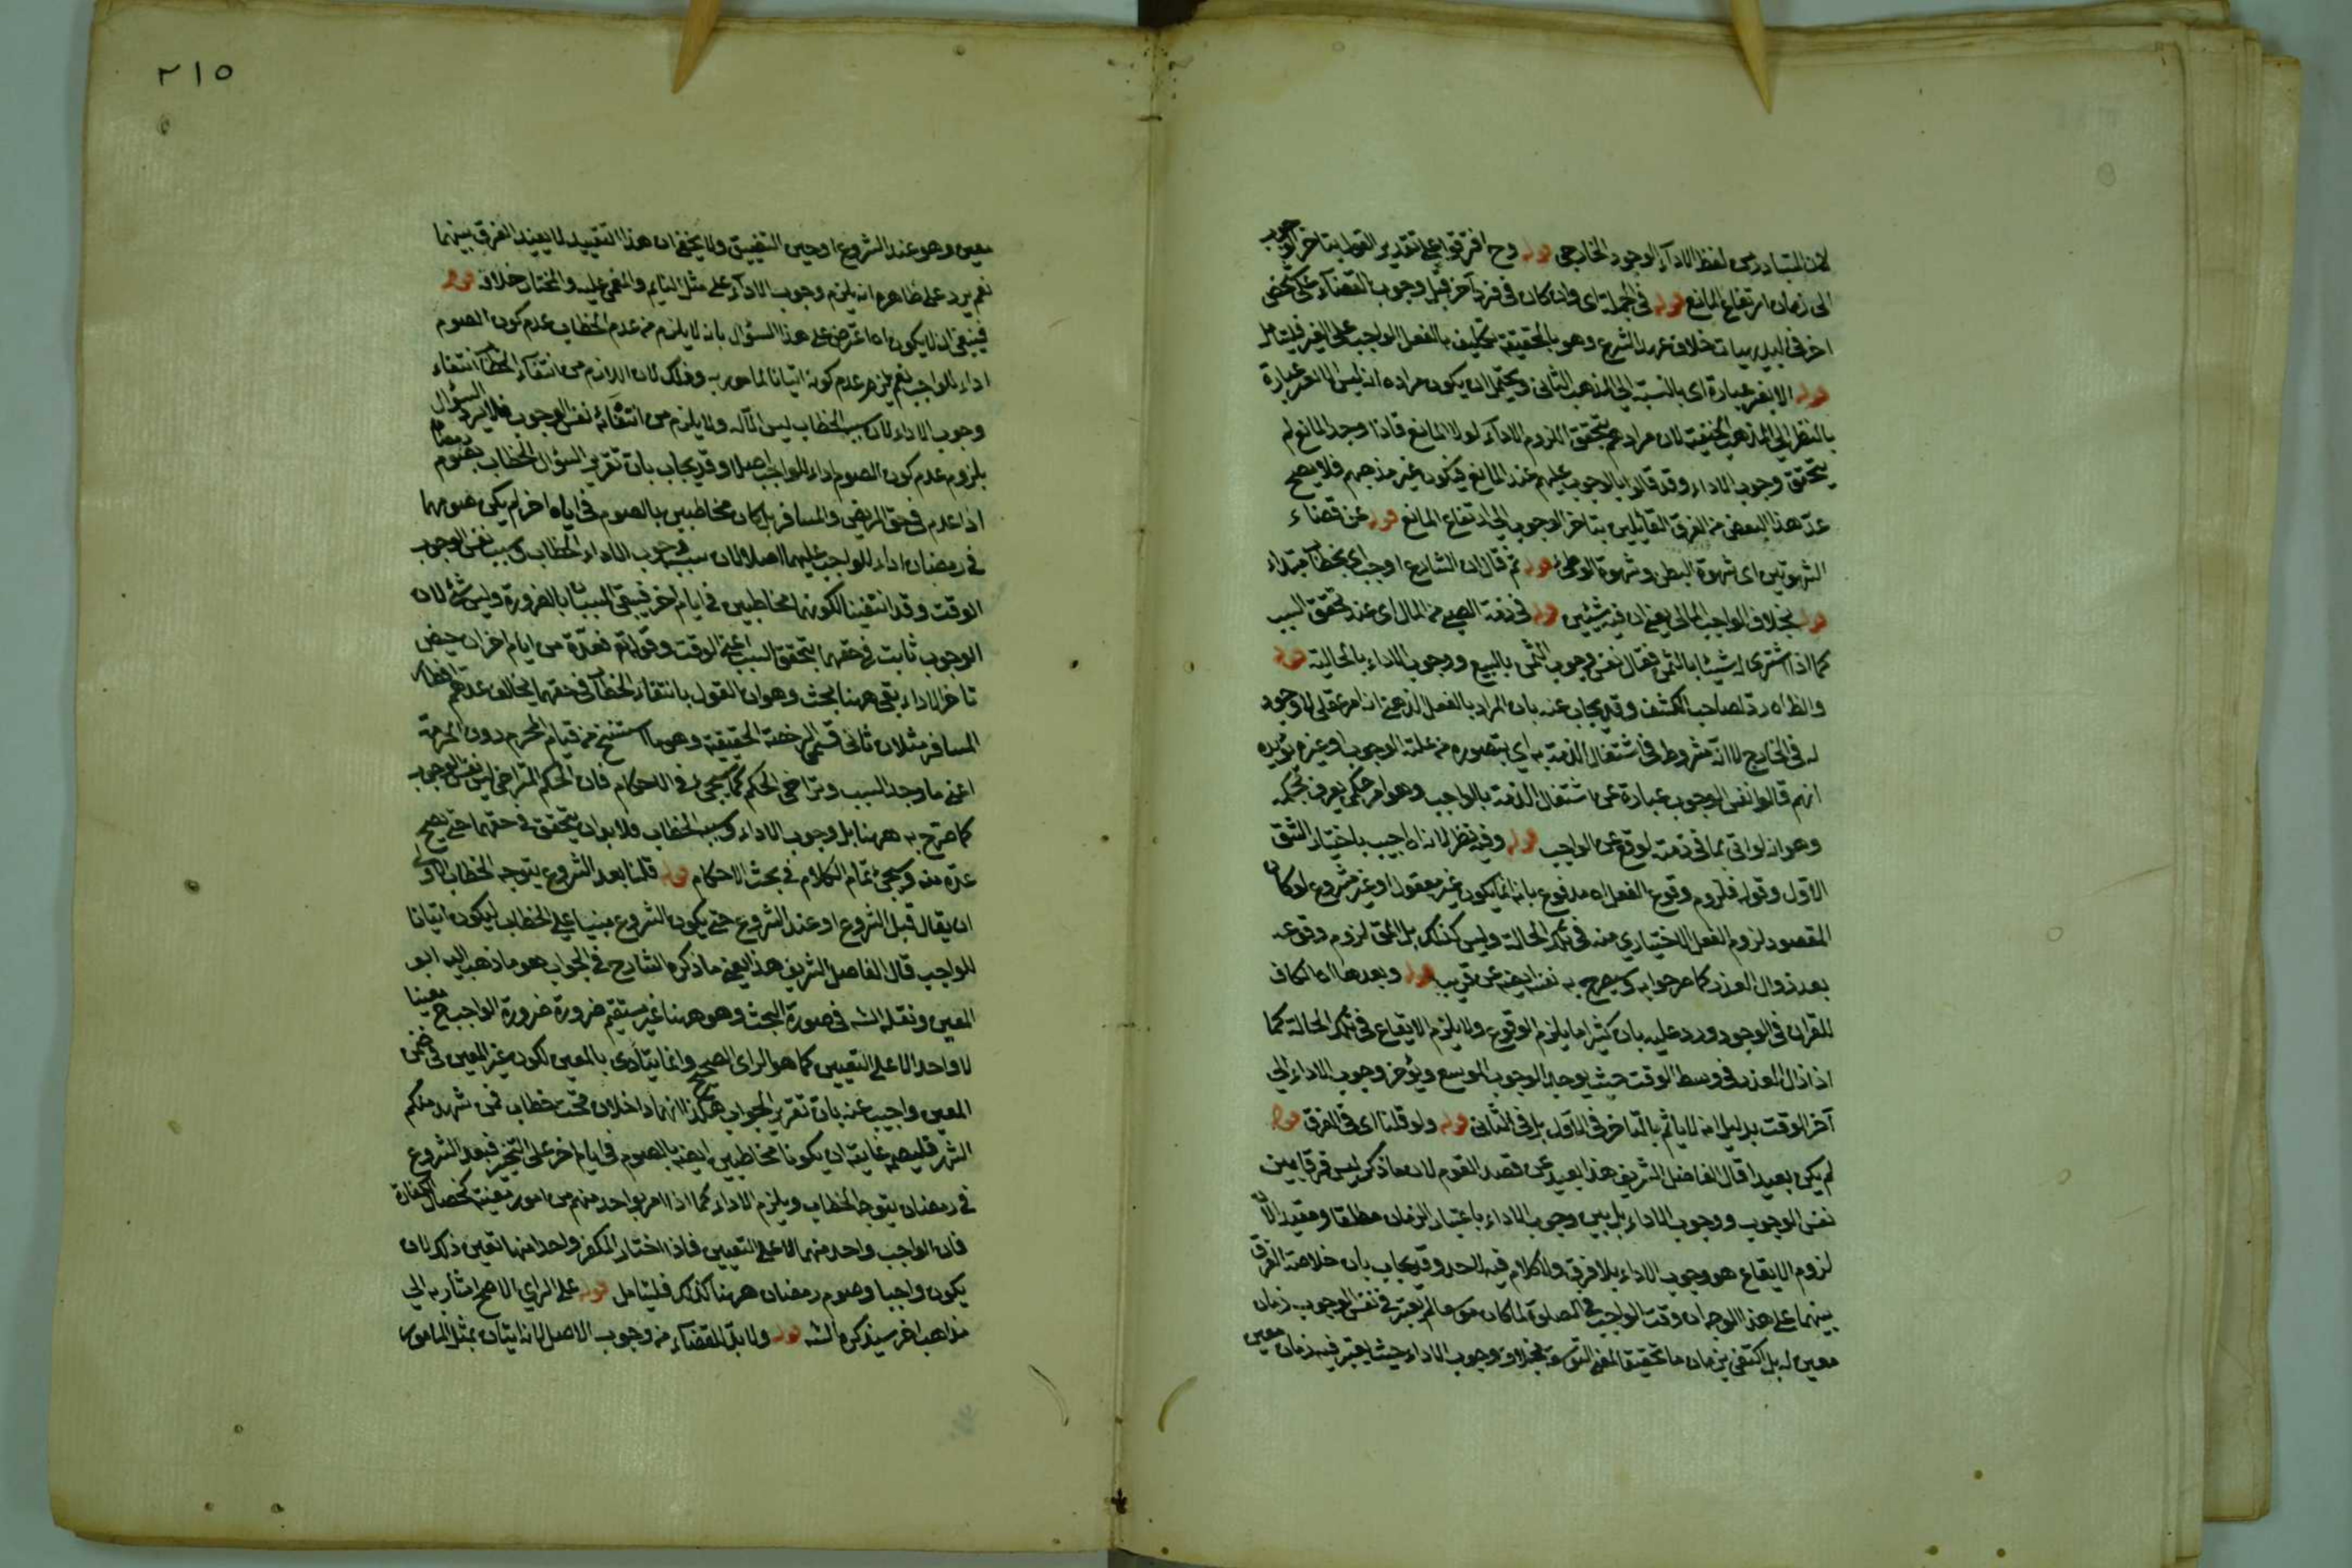 لان المتبادر من لفظ الاداء الوجود الخارجى قوله وح افترقوا على تقدير القول بتاخر الوجوب
الى زمان ارتفاع المانع قوله فى الجملة اى وان كان فى فرد آخر قبل وجوب القضاء على شخص
اخر فى البديهيات خلاف عرف الشرع وهو بالحقيقة تكليف بالفعل الواجب على الغير فليتامل
قوله الا بتغير عبارة اى بالنسبة الى المذهب الثانى ويحتمل ان يكون مراده انه ليس الا تغير عبارة
بالنظر الى المذهب الحنفية لان مرادهم بتحقق اللزوم الاداء لولا المانع فاذا وجد المانع لم
يتحقق وجوب الاداء وقد قالوا بالوجوب عليهم عند المانع فيكون غير مذهبهم فلا يصح
عد هذا البعض من الفرق القائلين بتاخر الوجوب الى ارتفاع المانع قوله عن قضاء
الشهوتين اى شهوة البطن وشهوة الوطئ قوله ثم قال ان الشارع اوجب اى بخطاب مبتداء
قوله بخلاف الواجب المالى يعنى ان فيه شيئين قوله فى ذمة الصبى من المال اى عند تحقق السبب
كما اذا اشترى له شيئا بالثمن فقال نفس وجوب الثمن بالبيع ووجوب الاداء بالحالية قوله
والظ اه رد لصاحب الكشف وقد يجاب عنه بان المراد بالفعل الذهنى انه امر عقلى لا وجود
له فى الخارج لا انه مشروط فى اشتغال الذمة به اى بتصوره من علته الوجوب او غيره يؤيده
انهم قالوا نفس الوجوب عبارة عن اشتغال الذمة بالواجب وهو امر حكمى يعرف بحكمه
وهو انه لو اتى بما فى ذمته لوقع عن الواجب قوله وفيه نظر لانه اه اجيب باختيار الشق
الاول وقوله فلزوم وقوع الفعل اه مدفوع بانه انما يكون غير معقول او غير مشروع لو كان
المقصود لزوم الفعل الاختيارى منه فى تلك الحالة وليس كذلك بل الحق لزوم وقوعه
بعد زوال العذر كما مر جوابه وسيصرح به نفسه ايضا عن قريب قوله وبعدها اه الكاف
للقران فى الوجود ورد عليه بان كثيرا ما يلزم الوقوع ولا يلزم الايقاع فى تلك الحالة كما
اذا زال العذر فى وسط الوقت حيث يوجد الوجوب الموسع ويؤخر وجوب الاداء الى
آخر الوقت بدليل انه لا ياثم بالتاخر فى الاول بل فى الثانى قوله ولو قلنا اى فى الفرق قوله
لم يكن بعيدا قال الفاضل الشريف هذا بعيد عن قصد القوم لان ما ذكر ليس فرقا بين
نفس الوجوب ووجوب الاداء بل بين وجوب الاداء باعتبار الزمان مطلقا ومقيدا لان
لزوم الايقاع هو وجوب الاداء بلا فرق ولا كلام فيه لاحد وقد يجاب بان خلاصة الفرق
بينهما على هذا الوجه ان وقت الواجب فى الصلوة لما كان موسعا لم يعتبر فى نفس الوجوب زمان
معين له بل اكتفى بزمان ما تحقيقا لمعنى التوسعة بخلاف وجوب الاداء حيث يعتبر فيه زمان معين
٢١٥
معين وهو عند الشروع او حين التضييق ولا يخفى ان هذا التقييد لا يفيد الفرق بينهما
نعم يرد على ظاهره انه يلزم وجوب الاداء على مثل النايم والمغمى عليه والمختار خلافه قوله
فينبغى ان لا يكون اه اعترض على هذا السؤال بانه لا يلزم من عدم الخطاب عدم كون الصوم
اداء للواجب نعم يلزم عدم كونه اتيانا لمامور به وذلك لان اللازم من انتفاء الخطاب انتفاء
وجوب الاداء لان سبب الخطاب ليس الا له ولا يلزم من انتفائه نفس الوجوب فلا يرد السؤال
بلزوم عدم كون الصوم اداء للواجب اصلا وقد يجاب بان تقرير السؤال الخطاب بصوم رمضان
اذا عدم فى حق المريض والمسافر بل كان مخاطبين بالصوم فى ايام اخر لم يكن صومهما
فى رمضان اداء للواجب عليهما اصلا لان سبب وجوب الاداء الخطاب وسبب نفس الوجوب
الوقت وقد انتفينا لكونهما مخاطبين فى ايام اخر فينتفى المسببان بالضرورة وليس بشئ لان
الوجوب ثابت فى حقهما بتحقق السبب اعنى الوقت وقوله تع فعدة من ايام اخر ان حيض
تاخر الاداء بقى ههنا بحث وهو ان القول بانتفاء الخطاب فى حقهما يخالف عدهم افطار
المسافر مثلا من ثانى قسمى الرخصة الحقيقية وهو ما استبيح مع قيام المحرم دون الحرمة
اعنى ما وجد السبب وتراخى الحكم كما سيجئ فى الاحكام فان الحكم المتراخى ليس نفس الوجوب
كما صرح به ههنا بل وجوب الاداء وسببه الخطاب فلابد ان يتحقق فى حقهما حتى يصح
عده منه وسيجئ تمام الكلام فى بحث الاحكام قوله قلنا بعد الشروع يتوجه الخطاب الاولى
ان يقال قبل الشروع او عند الشروع حتى يكون الشروع مبنيا على الخطاب ليكون اتيانا
للواجب قال الفاضل الشريف هذا يعنى ما ذكره الشارح فى الجواب هو ما ذهب اليه ابو
المعين ونقله الشه فى صورة البحث وهو ههنا غير مستقيم ضرورة ضرورة الواجب ح معينا
لا واحد الا على التعيين كما هو الراى الصحيح وانما يتادى بالمعين لكون غير المعين فى ضمن
المعين واجيب عنه بان تقرير الجواب هكذا انهما داخلان تحت خطاب فمن شهد منكم
الشهر فليصمه غايته ان يكونا مخاطبين ايضا بالصوم فى ايام اخر على التخيير فبعد الشروع
فى رمضان يتوجه الخطاب ويلزم الاداء كما اذا امر بواحد منهم من امور معينة كخصال الكفارة
فان الواجب واحد منهما لا على التعيين فاذا اختار المكفر واحدا منها تعين ذلك لان
يكون واجبا وصوم رمضان ههنا كذلك فليتامل قوله على الراى الاصح اشار به الى
مذاهب اخر سيذكره الشه قوله ولا بد للقضاء من وجوب الاصل لانه اتيان بمثل المامور